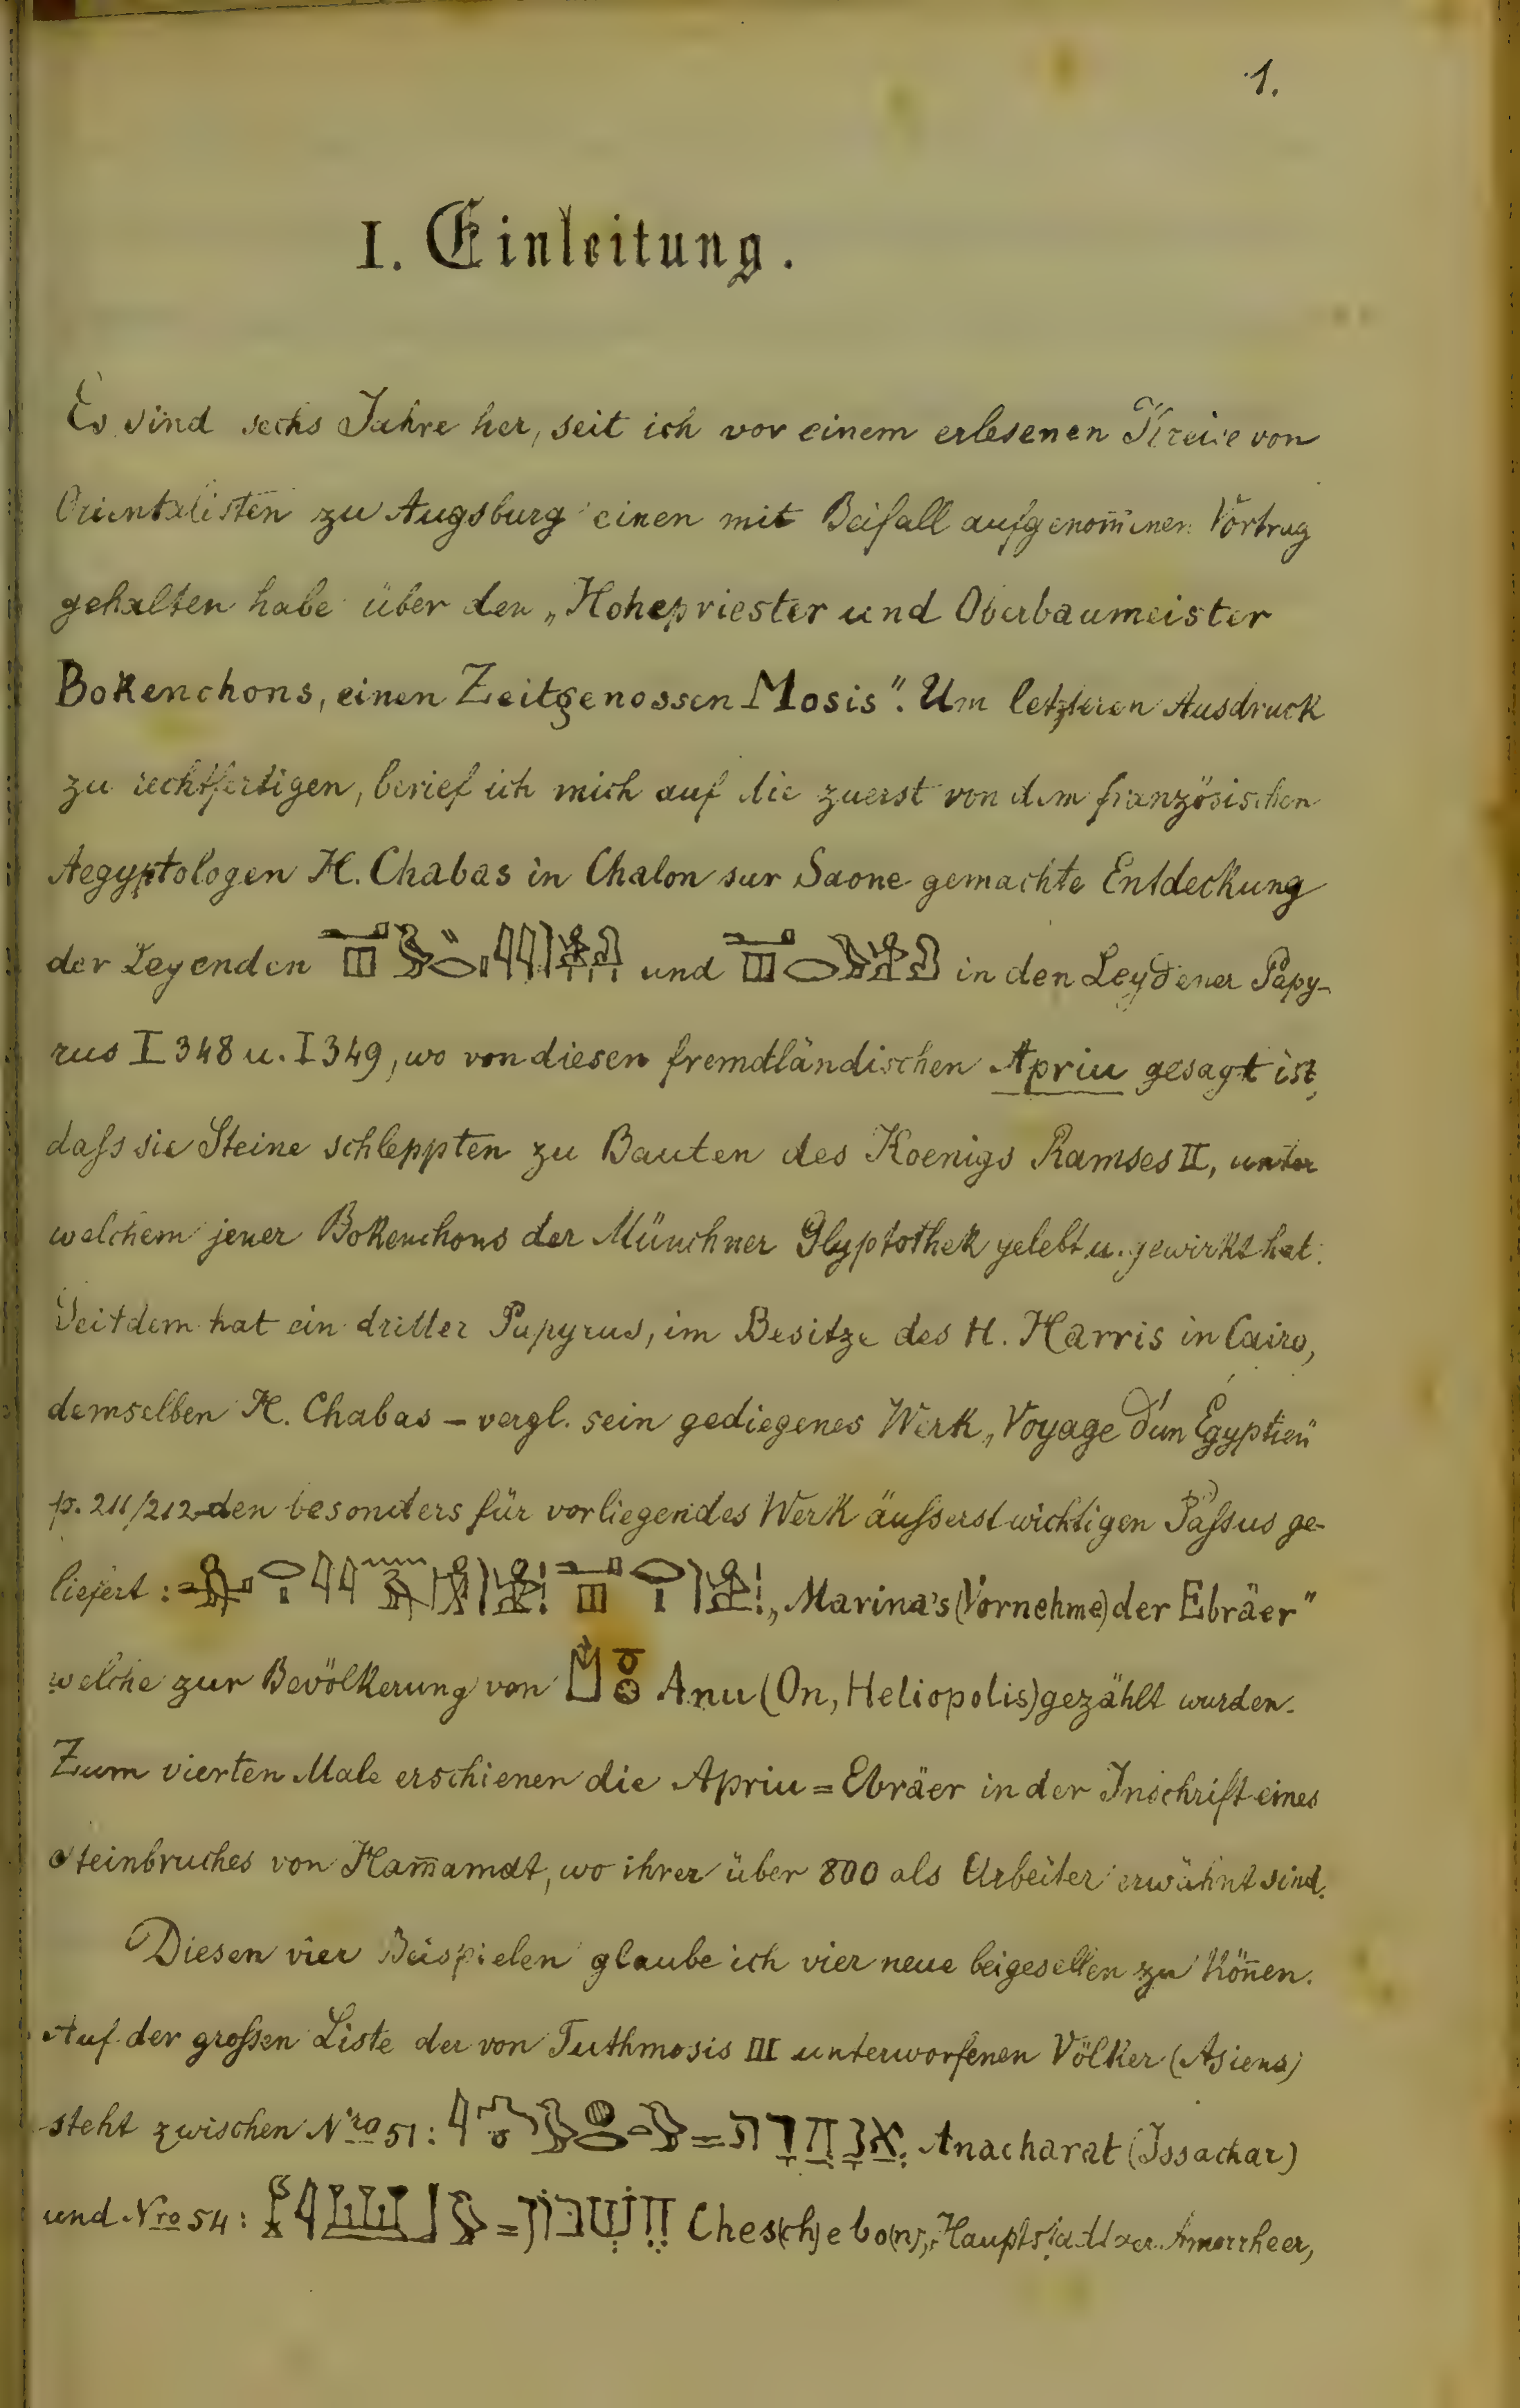 1.
I. Einleitung.
Es sind sechs Jahre her, seit ich vor einem erlesenen Kreise von
Orientalisten zu Augsburg einen mit Beifall aufgenom̄enen Vortrag
gehalten habe über den „Hohepriester und Oberbaumeister
Bokenchons, einen Zeitgenossen Mosis". Um letzteren Ausdruck
zu rechtfertigen, berief ich mich auf die zuerst von dem französischen
Aegyptologen H. Chabas in Chalon sur Saone gemachte Entdeckung
der Legenden und in den Leydener Papy-
rus I 348 u. I 349, wo von diesen fremdländischen Apriu gesagt ist,
daſs sie Steine schleppten zu Bauten des Koenigs Ramses II, unter
welchem jener Bokenchons der Münchner Glyptothek gelebt u. gewirkt hat.
Seitdem hat ein dritter Papyrus, im Besitze des H. Harris in Cairo,
demselben H. Chabas – vergl. sein gediegenes Werk „Voyage d'un Égyptien"
p. 211/212 – den besonders für vorliegendes Werk äuſserst wichtigen Paſsus ge-
liefert: „Marina's (Vornehme) der Ebräer"
welche zur Bevölkerung von Anu (On, Heliopolis) gezählt wurden.
Zum vierten Male erschienen die Apriu = Ebräer in der Inschrift eines
Steinbruches von Ham̄amât, wo ihrer über 800 als Arbeiter erwähnt sind.
Diesen vier Beispielen glaube ich vier neue beigesellen zu kön̄en.
Auf der groſsen Liste der von Tuthmosis III unterworfenen Völker (Asiens)
steht zwischen Nro 51: = אֲנָחֲרָת Anacharat (Issachar)
und Nro 54: = חֶשְׁבּוֹן Ches(ch)ebo(n), Hauptstadt der Amorrheer,